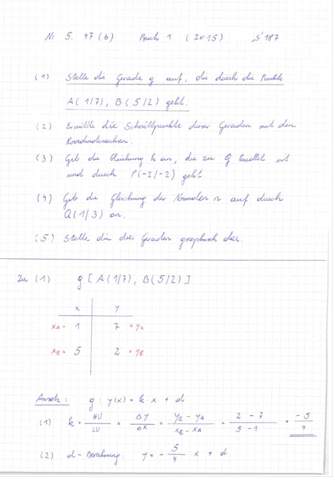 Nr 5. 47 (b) Buch 1 (2015) S 187
(1) Stelle die Gerade g auf, die durch die Punkte
A(1/7), B(5/2) geht.
(2) Ermittle die Schnittpunkte dieser Geraden mit den
Koordinatenachsen.
(3) Gib die Gleichung h an, die zu g parallel ist
und durch P(-2/-2) geht
(4) Gib die Gleichung der Normalen n auf durch
Q(1/3) an.
(5) Stelle die drei Geraden graphisch dar.
Zu (1) g [A(1/7), B(5/2)]
x y
xA = 1 7 = yA
xB = 5 2 = yB
Ansatz: g: y(x) = k x + d
(1) k = HU/LU = Δy/Δx = yB - yA / xB - xA = 2 - 7 / 5 - 1 = -5/4
(2) d-Berechnung y = -5/4 x + d